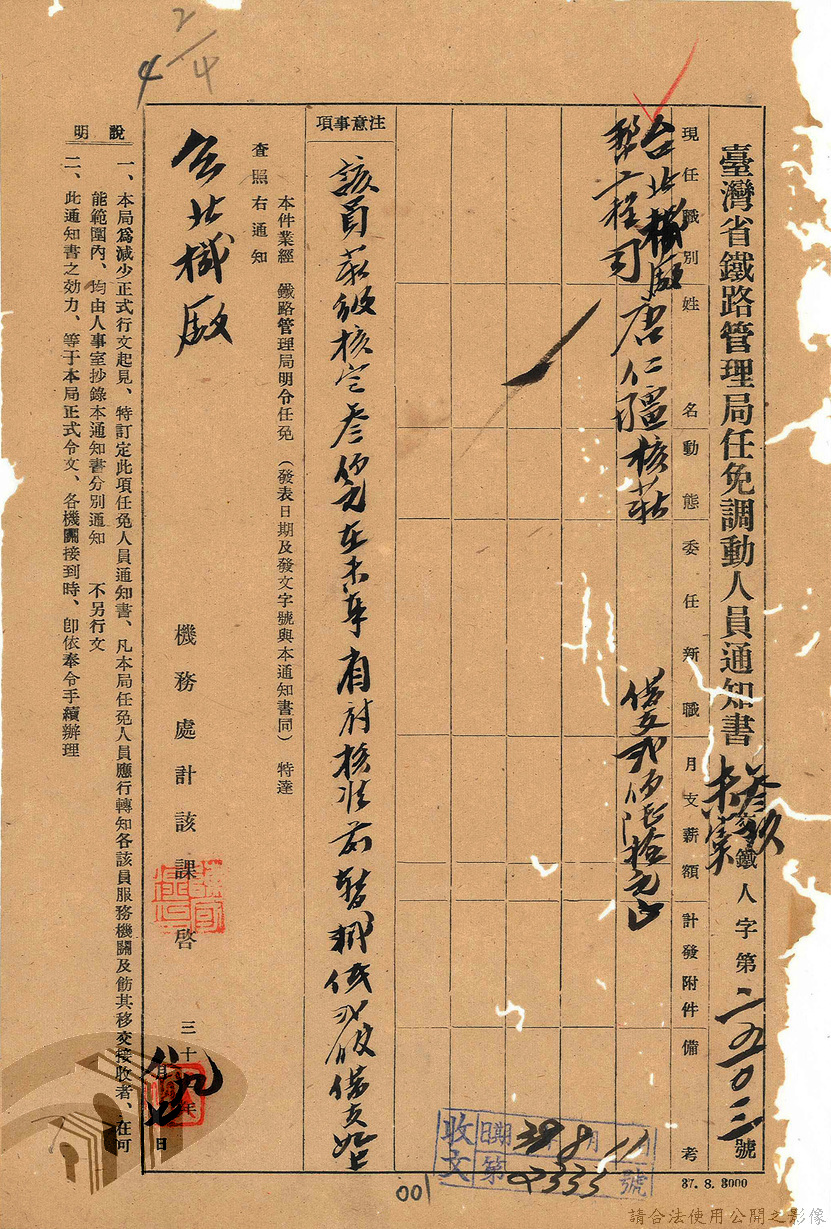 2/4
4
臺灣省鐵路管理局任免調動人員通知書
叁玖
未寒鐵人字第二五一〇三號
現任職別
姓名
動態
委任新職
月支薪額
計發附件
備考
台北機廠
工程司
唐仁疆
核薪
借支
拾元正
注意事項
該員薪級核定叁
在未奉省府核准前暫
借支
本件業經 鐵路管理局明令任免 (發表日期及發文字號與本通知書同) 特達
查照右通知
台北機廠
機務處計該課 啓 三十九年八月 日
說明
一、本局爲減少正式行文起見、特訂定此項任免人員通知書、凡本局任免人員應行轉知各該員服務機關及飭其移交接收者、在可
能範圍內、均由人事室抄錄本通知書分別通知 不另行文
二、此通知書之効力、等于本局正式令文、各機關接到時、卽依奉令手續辦理
收文
日期 39 8月 11
第 2335 號
37. 8. 3000
001
請合法使用公開之影像